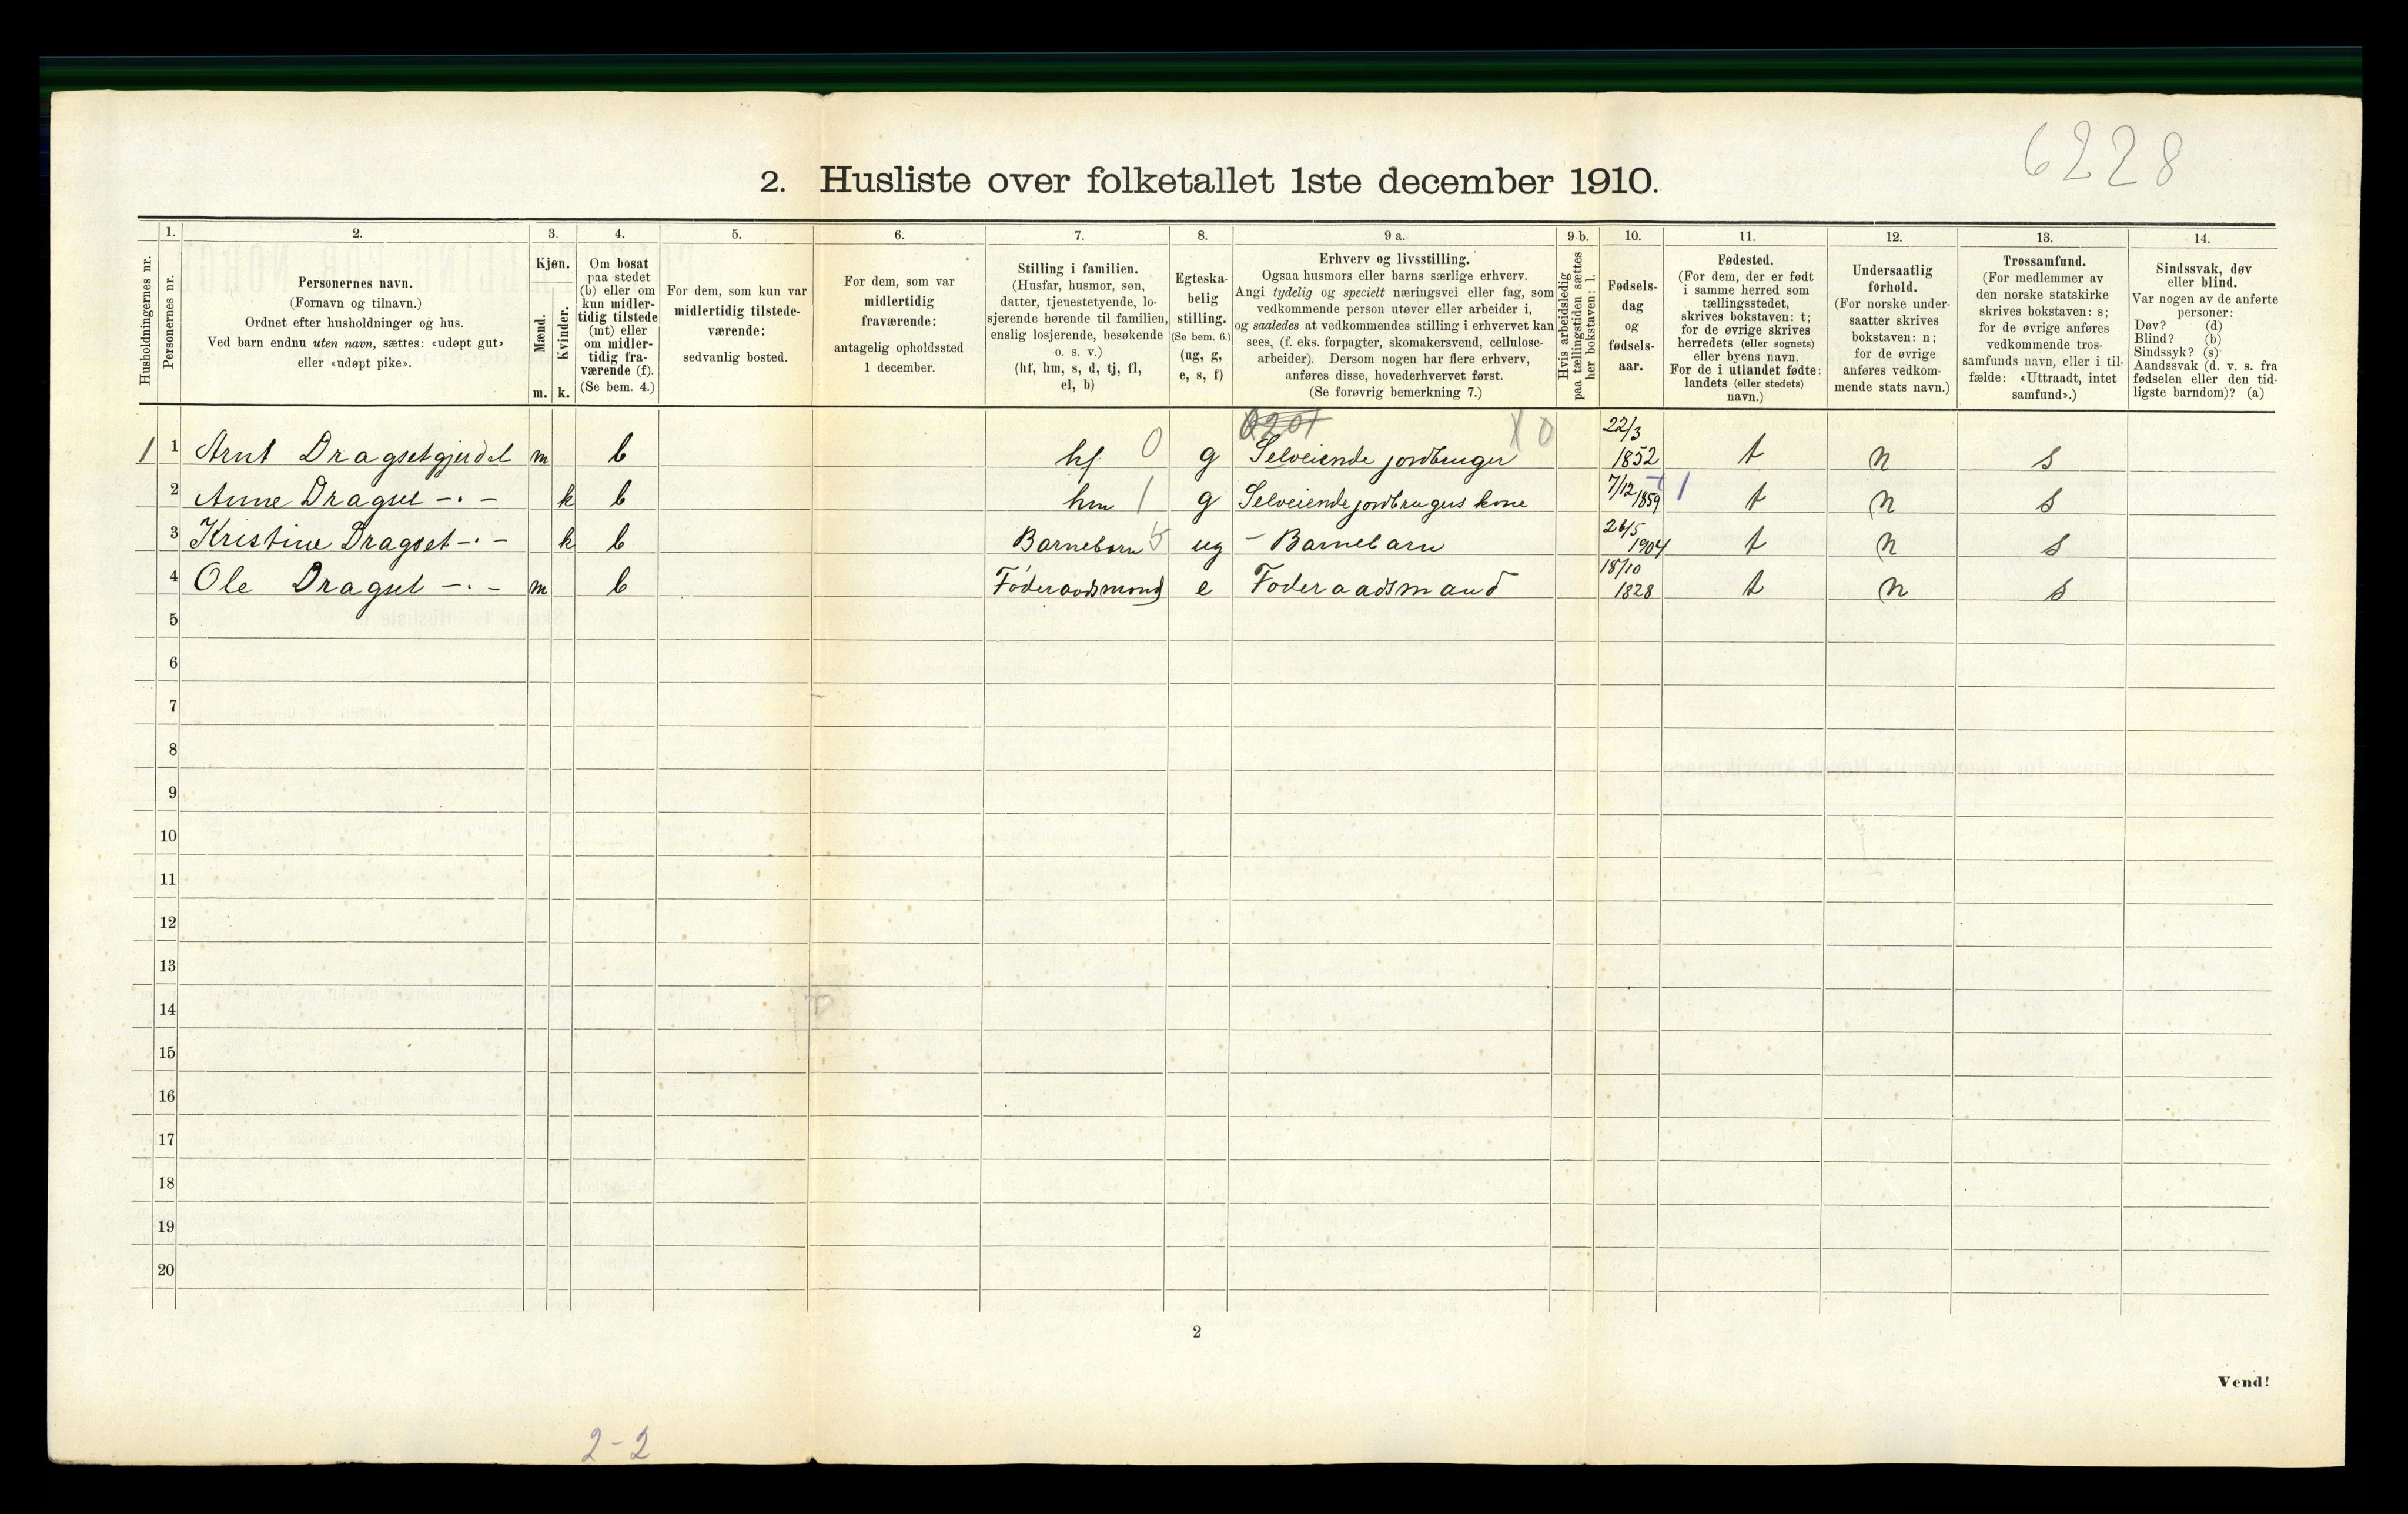 6228
2. Husliste over folketallet 1ste december 1910.
Husholdningernes nr.
1.
Personernes nr.
2.
Personernes navn.
(Fornavn og tilnavn.)
Ordnet efter husholdninger og hus.
Ved barn endnu uten navn, sættes: «udøpt gut»
eller «udøpt pike».
3.
Kjøn.
Mænd.
Kvinder.
m. k.
4.
Om bosat
paa stedet
(b) eller om
kun midler-
tidig tilstede
(mt) eller
om midler-
tidig fra-
værende (f).
(Se bem. 4.)
5.
For dem, som kun var
midlertidig tilstede-
værende:
sedvanlig bosted.
6.
For dem, som var
midlertidig
fraværende:
antagelig opholdssted
1 december.
7.
Stilling i familien.
(Husfar, husmor, søn,
datter, tjenestetyende, lo-
sjerende hørende til familien,
enslig losjerende, besøkende
o. s. v.)
(hf, hm, s, d, tj, fl,
el, b)
8.
Egteska-
belig
stilling.
(Se bem. 6.)
(ug, g,
e, s, f)
9 a.
Erhverv og livsstilling.
Ogsaa husmors eller barns særlige erhverv.
Angi tydelig og specielt næringsvei eller fag, som
vedkommende person utøver eller arbeider i,
og saaledes at vedkommendes stilling i erhvervet kan
sees, (f. eks. forpagter, skomakersvend, cellulose-
arbeider). Dersom nogen har flere erhverv,
anføres disse, hovederhvervet først.
(Se forøvrig bemerkning 7.)
9 b.
Hvis arbeidsledig
paa tællingstiden sættes
her bokstaven: l.
10.
Fødsels-
dag
og
fødsels-
aar.
11.
Fødested.
(For dem, der er født
i samme herred som
tællingsstedet,
skrives bokstaven: t;
for de øvrige skrives
herredets (eller sognets)
eller byens navn.
For de i utlandet fødte:
landets (eller stedets)
navn.)
12.
Undersaatlig
forhold.
(For norske under-
saatter skrives
bokstaven: n;
for de øvrige
anføres vedkom-
mende stats navn.)
13.
Trossamfund.
(For medlemmer av
den norske statskirke
skrives bokstaven: s;
for de øvrige anføres
vedkommende tros-
samfunds navn, eller i til-
fælde: «Uttraadt, intet
samfund».)
14.
Sindssvak, døv
eller blind.
Var nogen av de anførte
personer:
Døv? (d)
Blind? (b)
Sindssyk? (s)
Aandssvak (d. v. s. fra
fødselen eller den tid-
ligste barndom)? (a)
1 1 Arnt Dragsetgjerdet m b hf 0 g Selveiende jordbruger X 0 22/3 1852 t n s
2 Anne Dragset -.- k b hm 1 g Selveiende jordbrugers kone 7/12 1859 1 t n s
3 Kristine Dragset -.- k b Barnebarn 5 ug - Barnebarn 26/5 1904 t n s
4 Ole Dragset -.- m b Føderaadsmand e Føderaadsmand 18/10 1828 t n s
5
6
7
8
9
10
11
12
13
14
15
16
17
18
19
20
2
Vend!
2-2